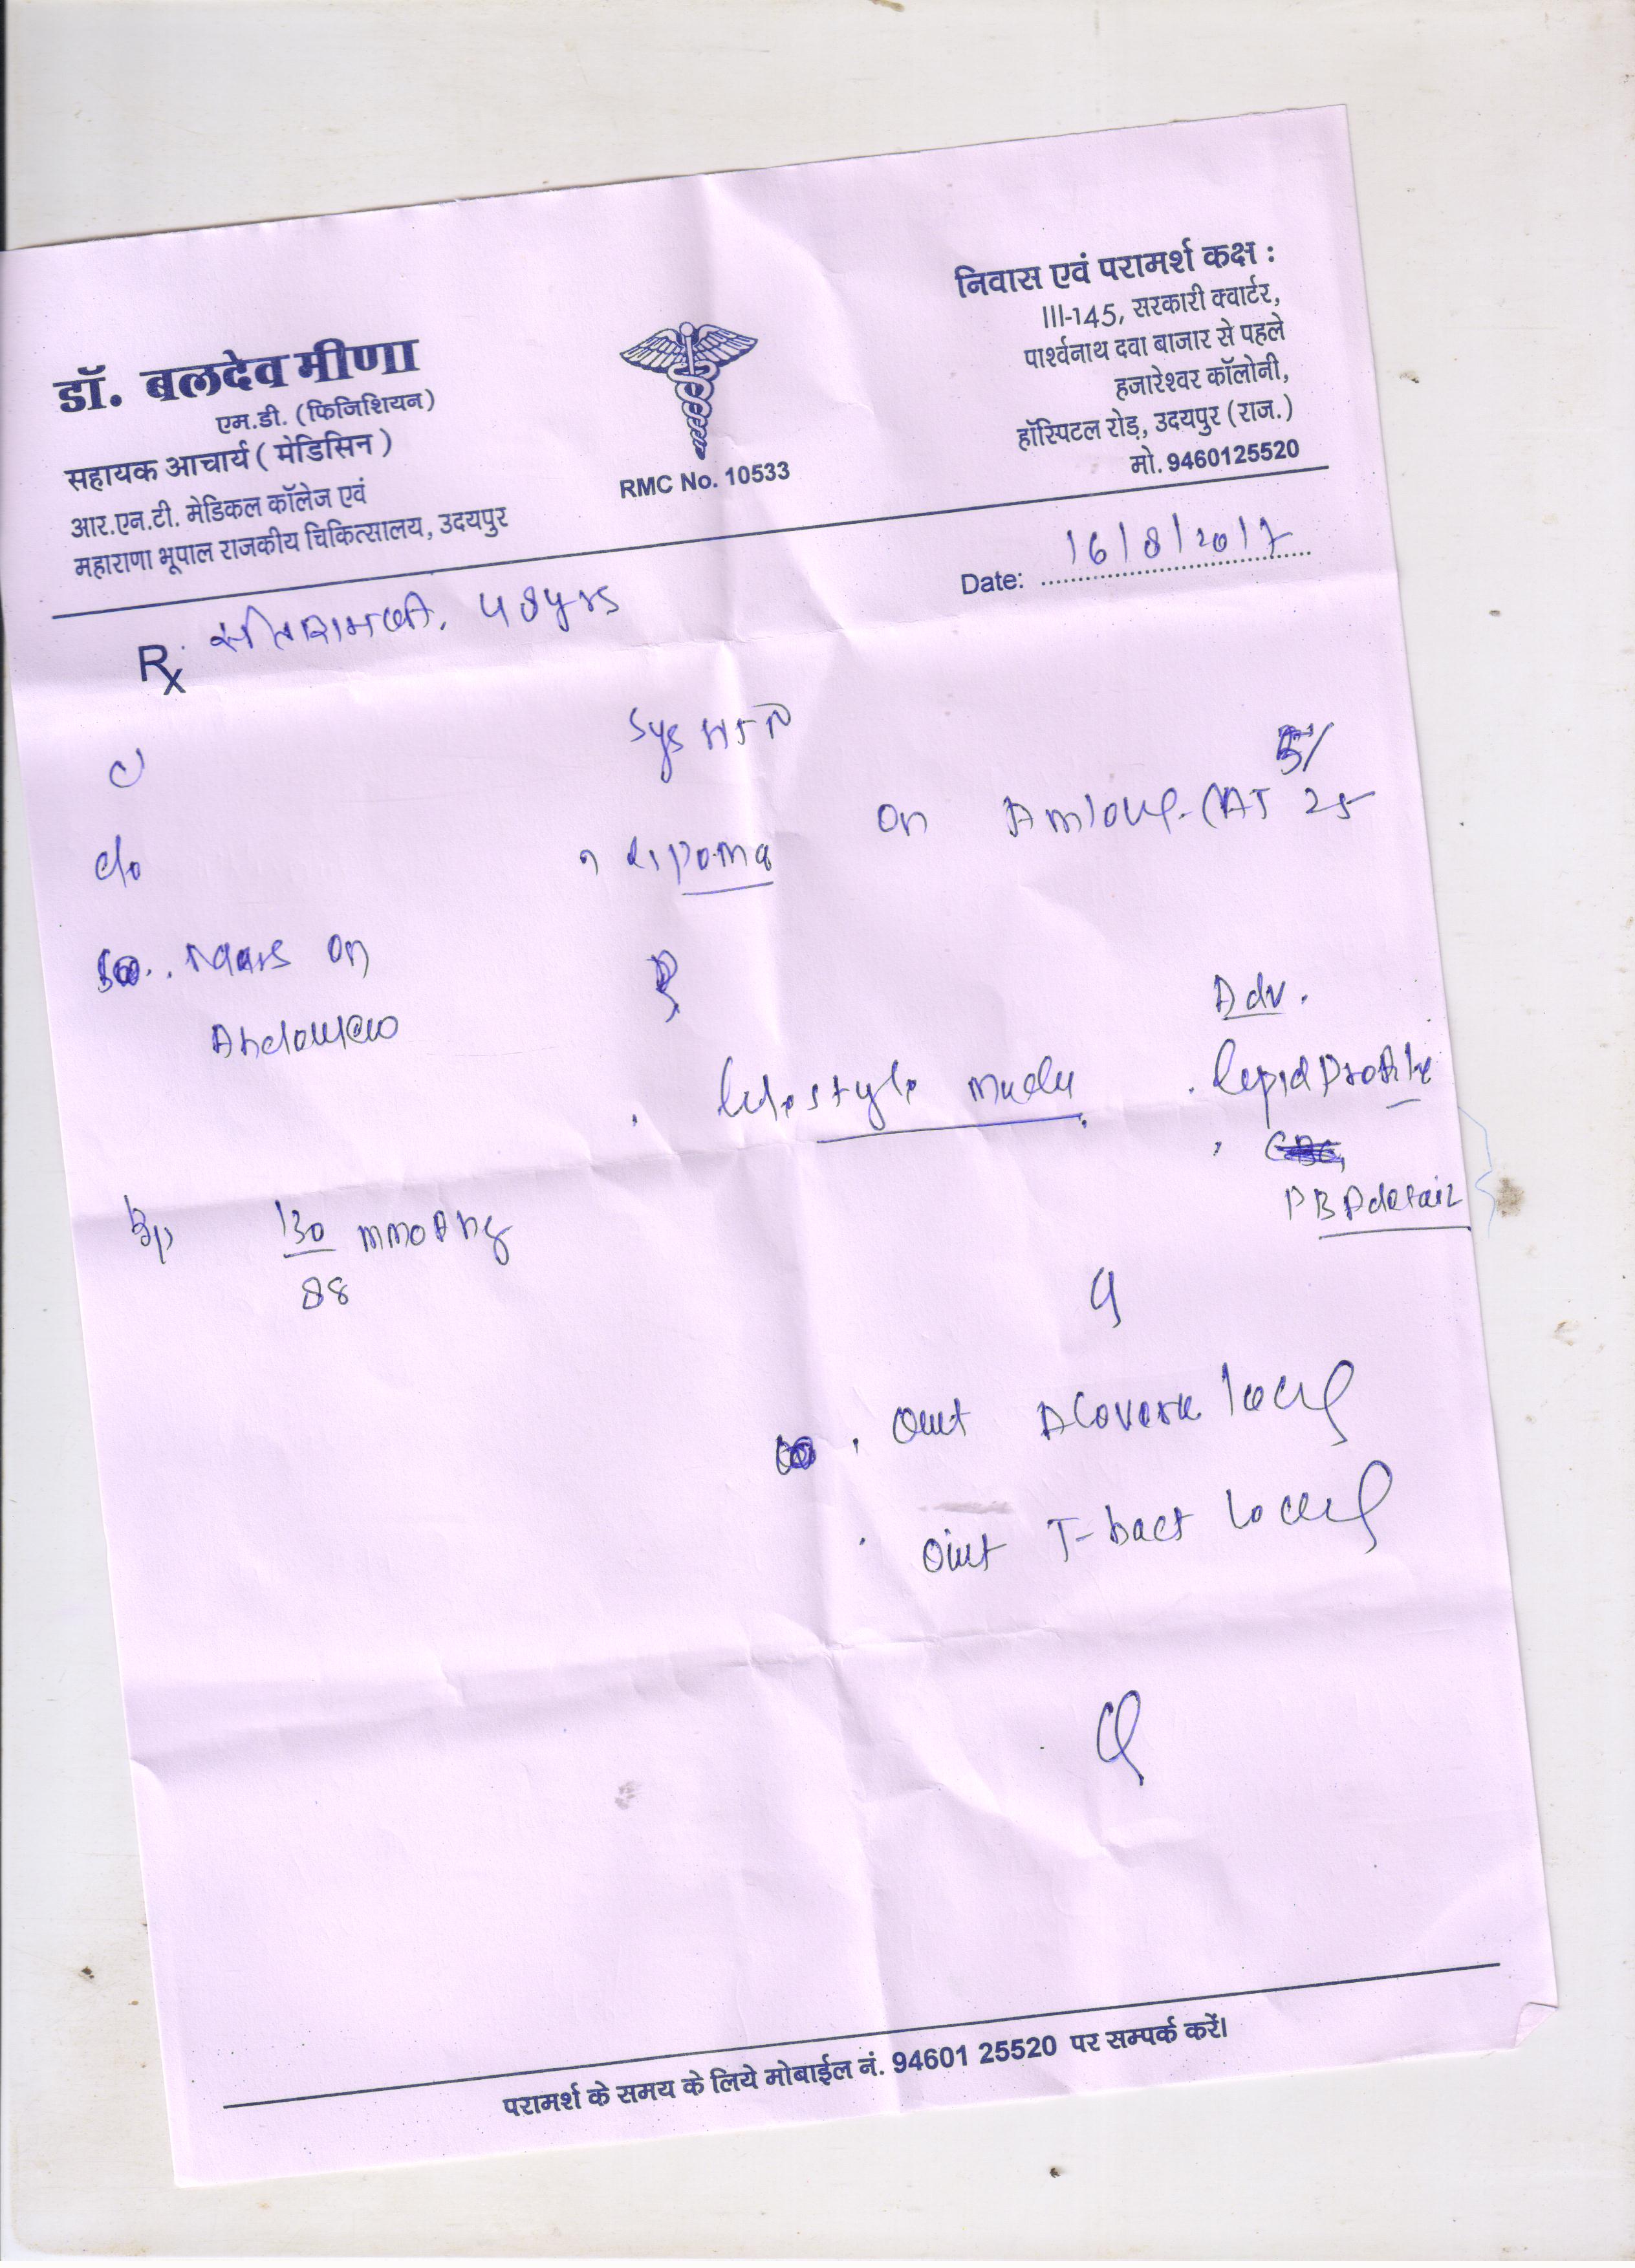 डॉ. बलदेव मीणा
एम.डी. (फिजिशियन)
सहायक आचार्य ( मेडिसिन )
आर.एन.टी. मेडिकल कॉलेज एवं
महाराणा भूपाल राजकीय चिकित्सालय, उदयपुर
RMC No. 10533
निवास एवं परामर्श कक्ष :
III-145, सरकारी क्वार्टर,
पार्श्वनाथ दवा बाजार से पहले
हजारेश्वर कॉलोनी,
हॉस्पिटल रोड़, उदयपुर (राज.)
मो. 9460125520
Date: 16/8/2017
Rx
Sys HTN
c/o
Lipoma
on 5/ 25
on
Abdomen
Adv.
lifestyle
Lipid Profile
BP 130 mmOf Hg
88
Oint Alovera locally
Oint T-bact locally
परामर्श के समय के लिये मोबाईल नं. 94601 25520 पर सम्पर्क करें।